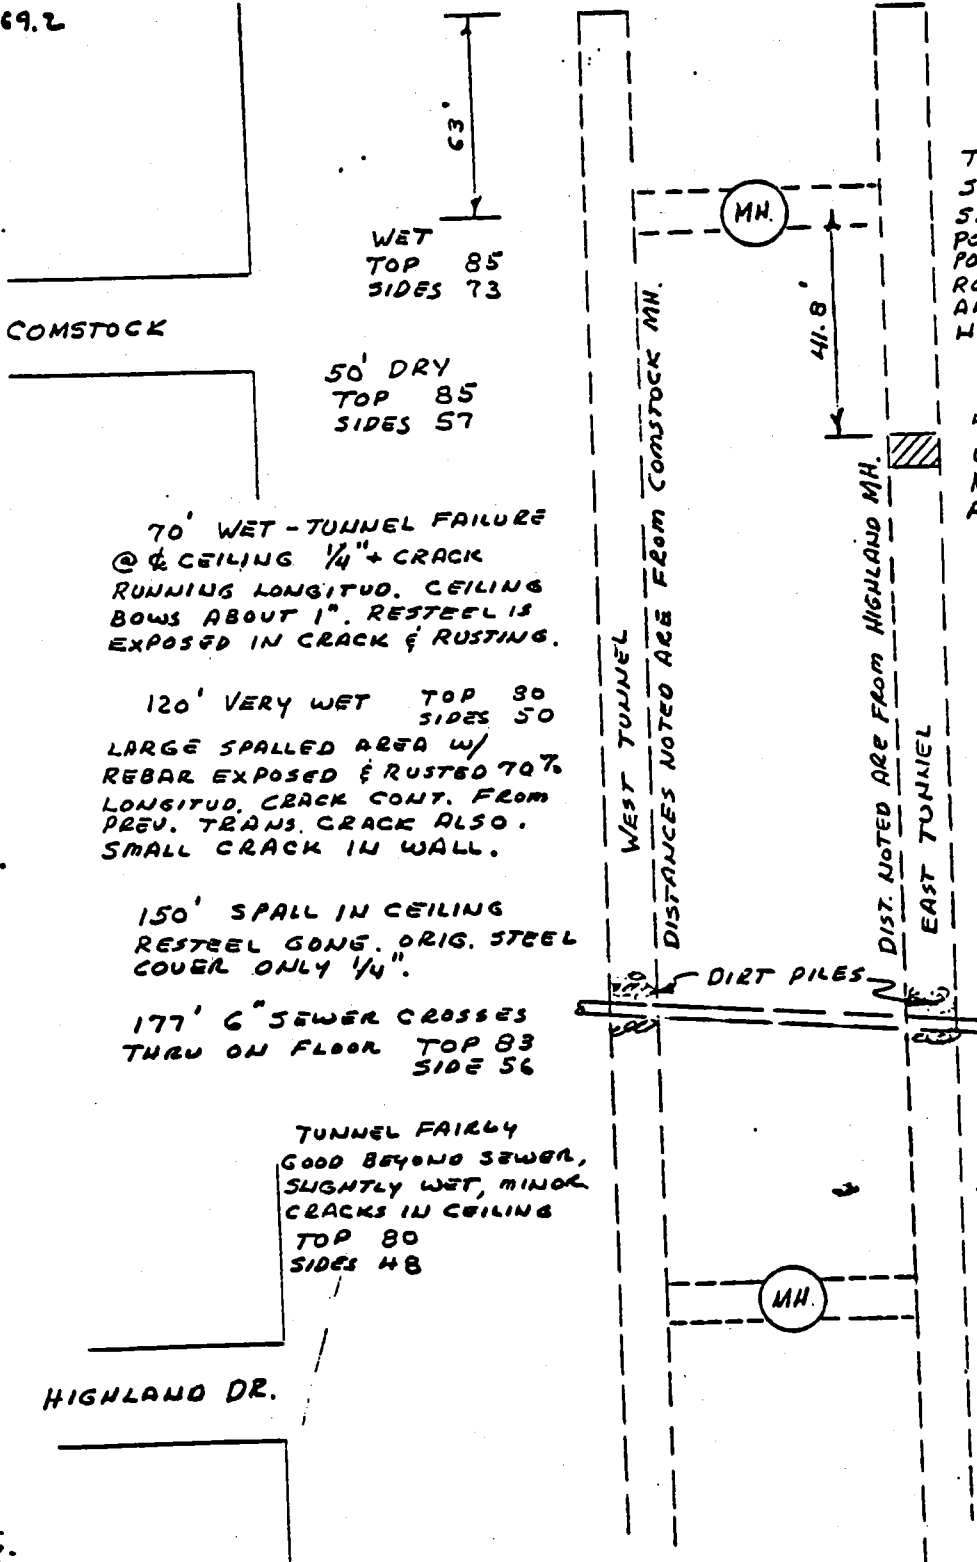 69.2
63'
WET
TOP 85
SIDES 73
COMSTOCK
50' DRY
TOP 85
SIDES 57
70' WET - TUNNEL FAILURE
@ ℄ CEILING 1/4"+ CRACK
RUNNING LONGITUD. CEILING
BOWS ABOUT 1". RESTEEL IS
EXPOSED IN CRACK & RUSTING.
120' VERY WET TOP 80
SIDES 50
LARGE SPALLED AREA W/
REBAR EXPOSED & RUSTED 70%
LONGITUD. CRACK CONT. FROM
PREV. TRANS. CRACK ALSO.
SMALL CRACK IN WALL.
150' SPALL IN CEILING
RESTEEL GONE. ORIG. STEEL
COVER ONLY 1/4".
177' 6" SEWER CROSSES
THRU ON FLOOR TOP 83
SIDE 56
TUNNEL FAIRLY
GOOD BEYOND SEWER,
SLIGHTLY WET, MINOR
CRACKS IN CEILING
TOP 80
SIDES 48
HIGHLAND DR.
WEST TUNNEL
DISTANCES NOTED ARE FROM COMSTOCK MH.
MH.
41.8'
DIST. NOTED ARE FROM HIGHLAND MH.
EAST TUNNEL
DIRT PILES
MH.